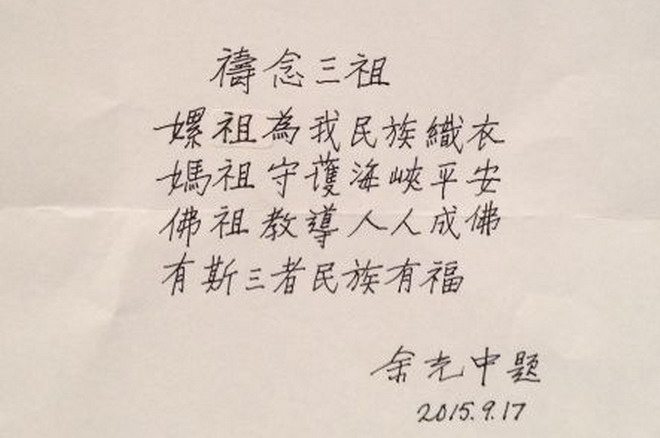 禱念三祖
嫘祖為我民族織衣
媽祖守護海峽平安
佛祖教導人人成佛
有斯三者民族有福
余光中題
2015.9.17